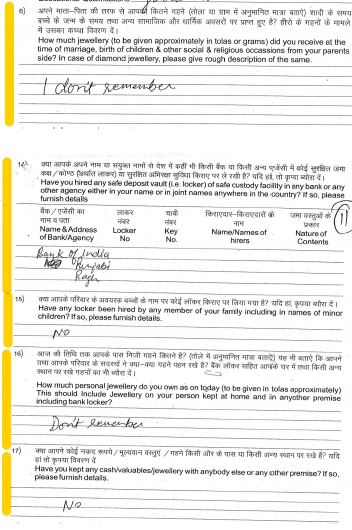 6) अपने माता-पिता की तरफ से आपको कितने गहने (तोला या ग्राम में अनुमानित मात्रा बताऐं) शादी के समय
बच्चे के जन्म के समय तथा अन्य सामाजिक और धार्मिक अवसरों पर प्राप्त हुए है? हीरो के गहनों के मामले
में उसका कच्चा विवरण दें।
How much jewellery (to be given approximately in tolas or grams) did you receive at the
time of marriage, birth of children & other social & religious occassions from your parents
side? In case of diamond jewellery, please give rough description of the same.
I don't remember
14) क्या आपके अपने नाम या संयुक्त नामों से देश में कहीं भी किसी बैंक या किसी अन्य एजेंसी में कोई सुरक्षित जमा
कक्ष / कोष्ठ (अर्थात लाकर) या सुरक्षित अभिरक्षा सुविधा किराए पर ले रखी है? यदि हां, तो कृपया ब्योरा दें।
Have you hired any safe deposit vault (i.e. locker) of safe custody facility in any bank or any
other agency either in your name or in joint names anywhere in the country? If so, please
furnish details
बैंक / एजेंसी का लाकर चाबी किराएदार-किराएदारों के जमा वस्तुओं के
नाम व पता नंबर नंबर नाम प्रकार
Name & Address Locker Key Name/Names of Nature of
of Bank/Agency No No. hirers Contents
11
Bank of India
Punjabi
Bagh
15) क्या आपके परिवार के अवयस्क बच्चों के नाम पर कोई लॉकर किराए पर लिया गया है? यदि हां, कृपया ब्योरा दें।
Have any locker been hired by any member of your family including in names of minor
children? If so, please furnish details.
NO
16) आज की तिथि तक आपके पास निजी गहने कितने है? (तोले में अनुमानित मात्रा बताऐं) यह भी बताऐं कि आपने
तथा आपके परिवार के सदस्यों ने क्या-क्या गहने पहन रखे है? बैंक लॉकर सहित आपके घर में तथा किसी अन्य
स्थान पर रखे गहनों का भी ब्योरा दें।
How much personal jewellery do you own as on today (to be given in tolas approximately)
This should Include Jewellery on your person kept at home and in anyother premise
including bank locker?
Don't remember
17) क्या आपने कोई नकद रूपये / मूल्यवान वस्तुएं / गहने किसी और के पास या किसी अन्य स्थान पर रखे है? यदि
हां तो कृपया विवरण दें
Have you kept any cash/valuables/jewellery with anybody else or any other premise? If so,
please furnish details.
NO